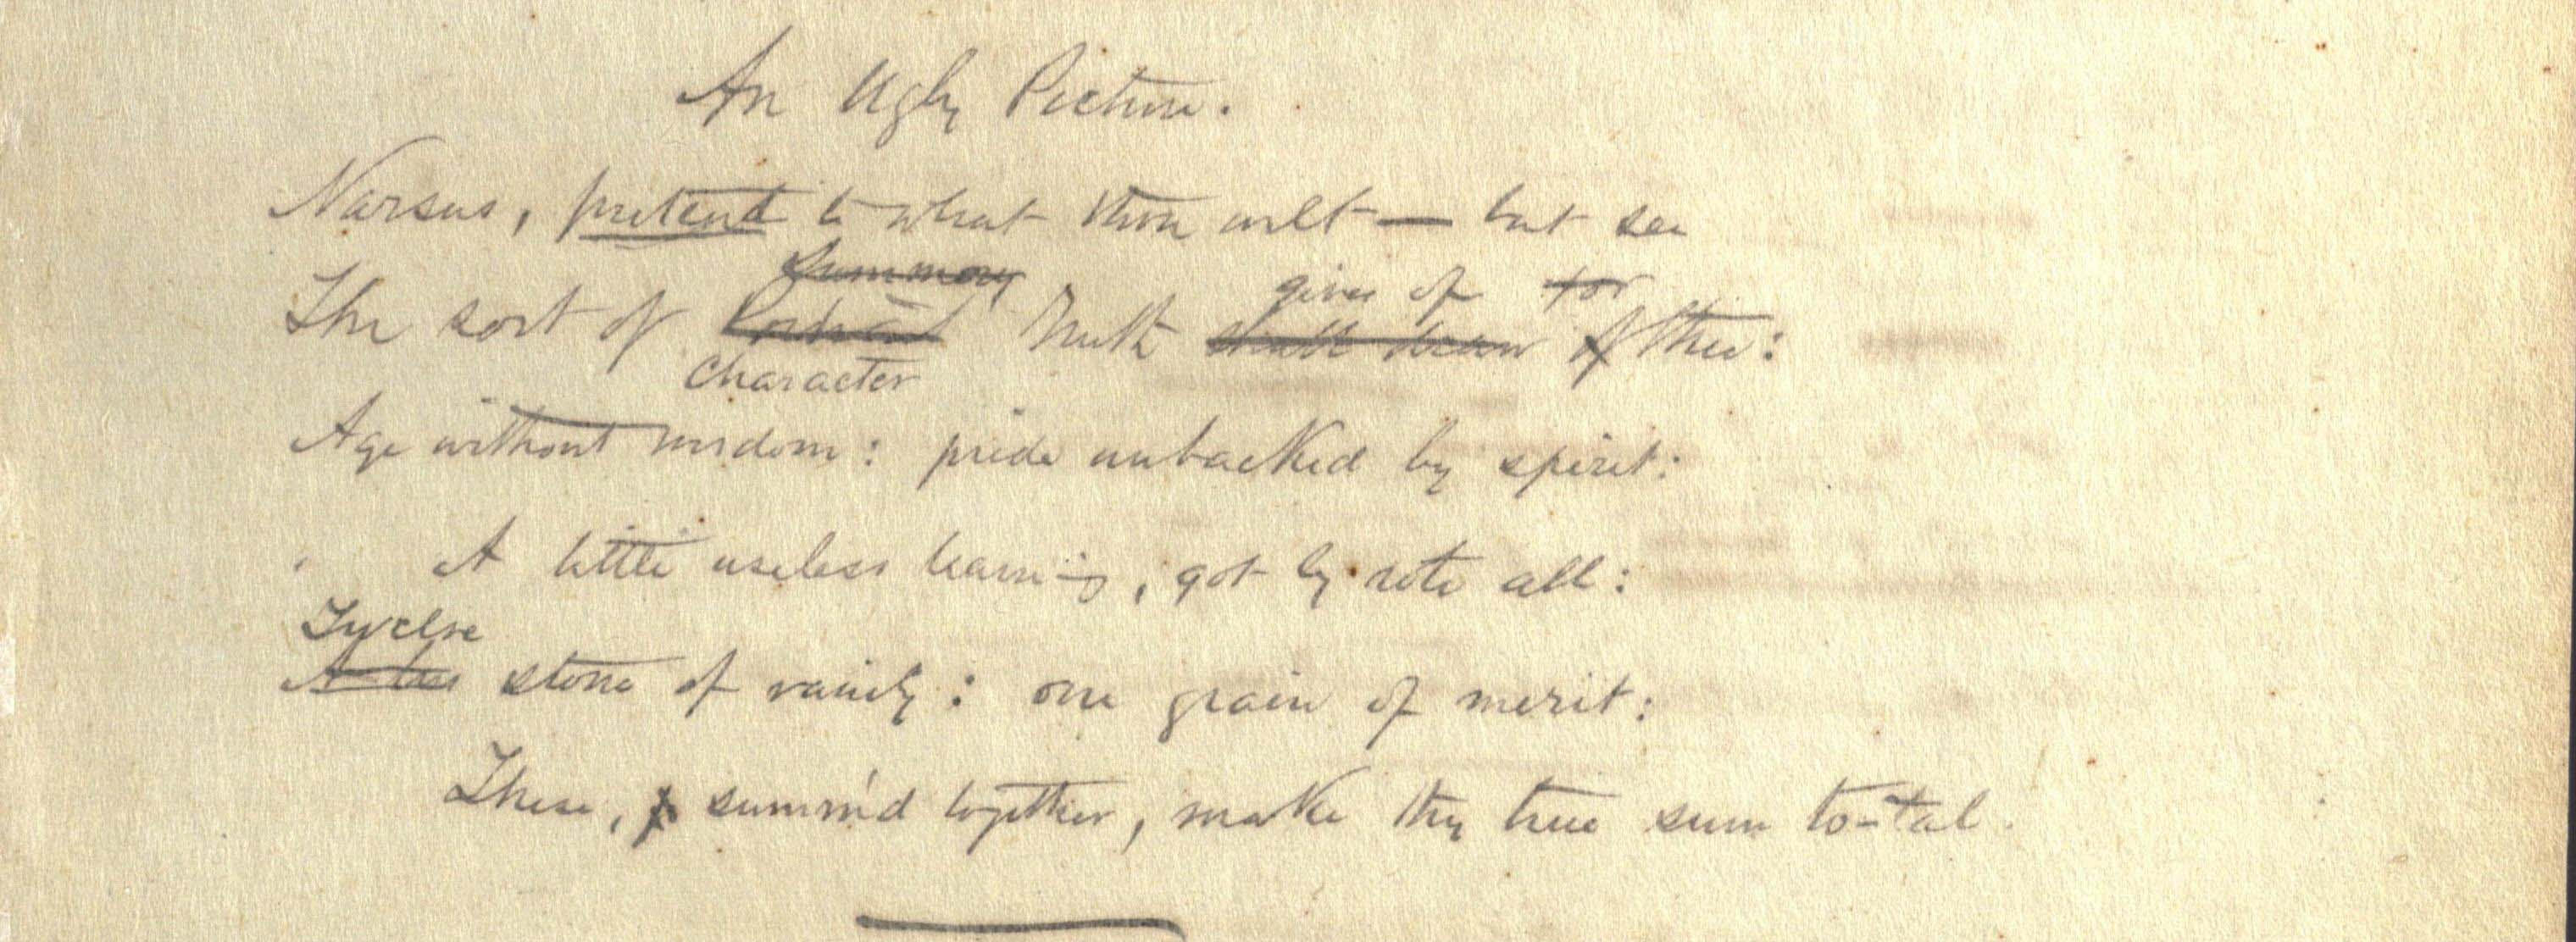 An Ugly Picture.
Narsus, pretend to what thou wilt — but see
summary
gives of for
The sort of Portrait Truth shall draw of thee:
Character
Age without wisdom: pride unbacked by spirit:
A little useless learning, got by rote all:
Twelve
stone of vanity: one grain of merit:
These, summ'd together, make thy true sum to-tal.